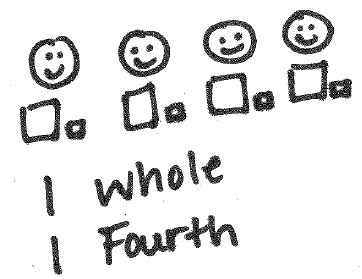 1 Whole
1 Fourth